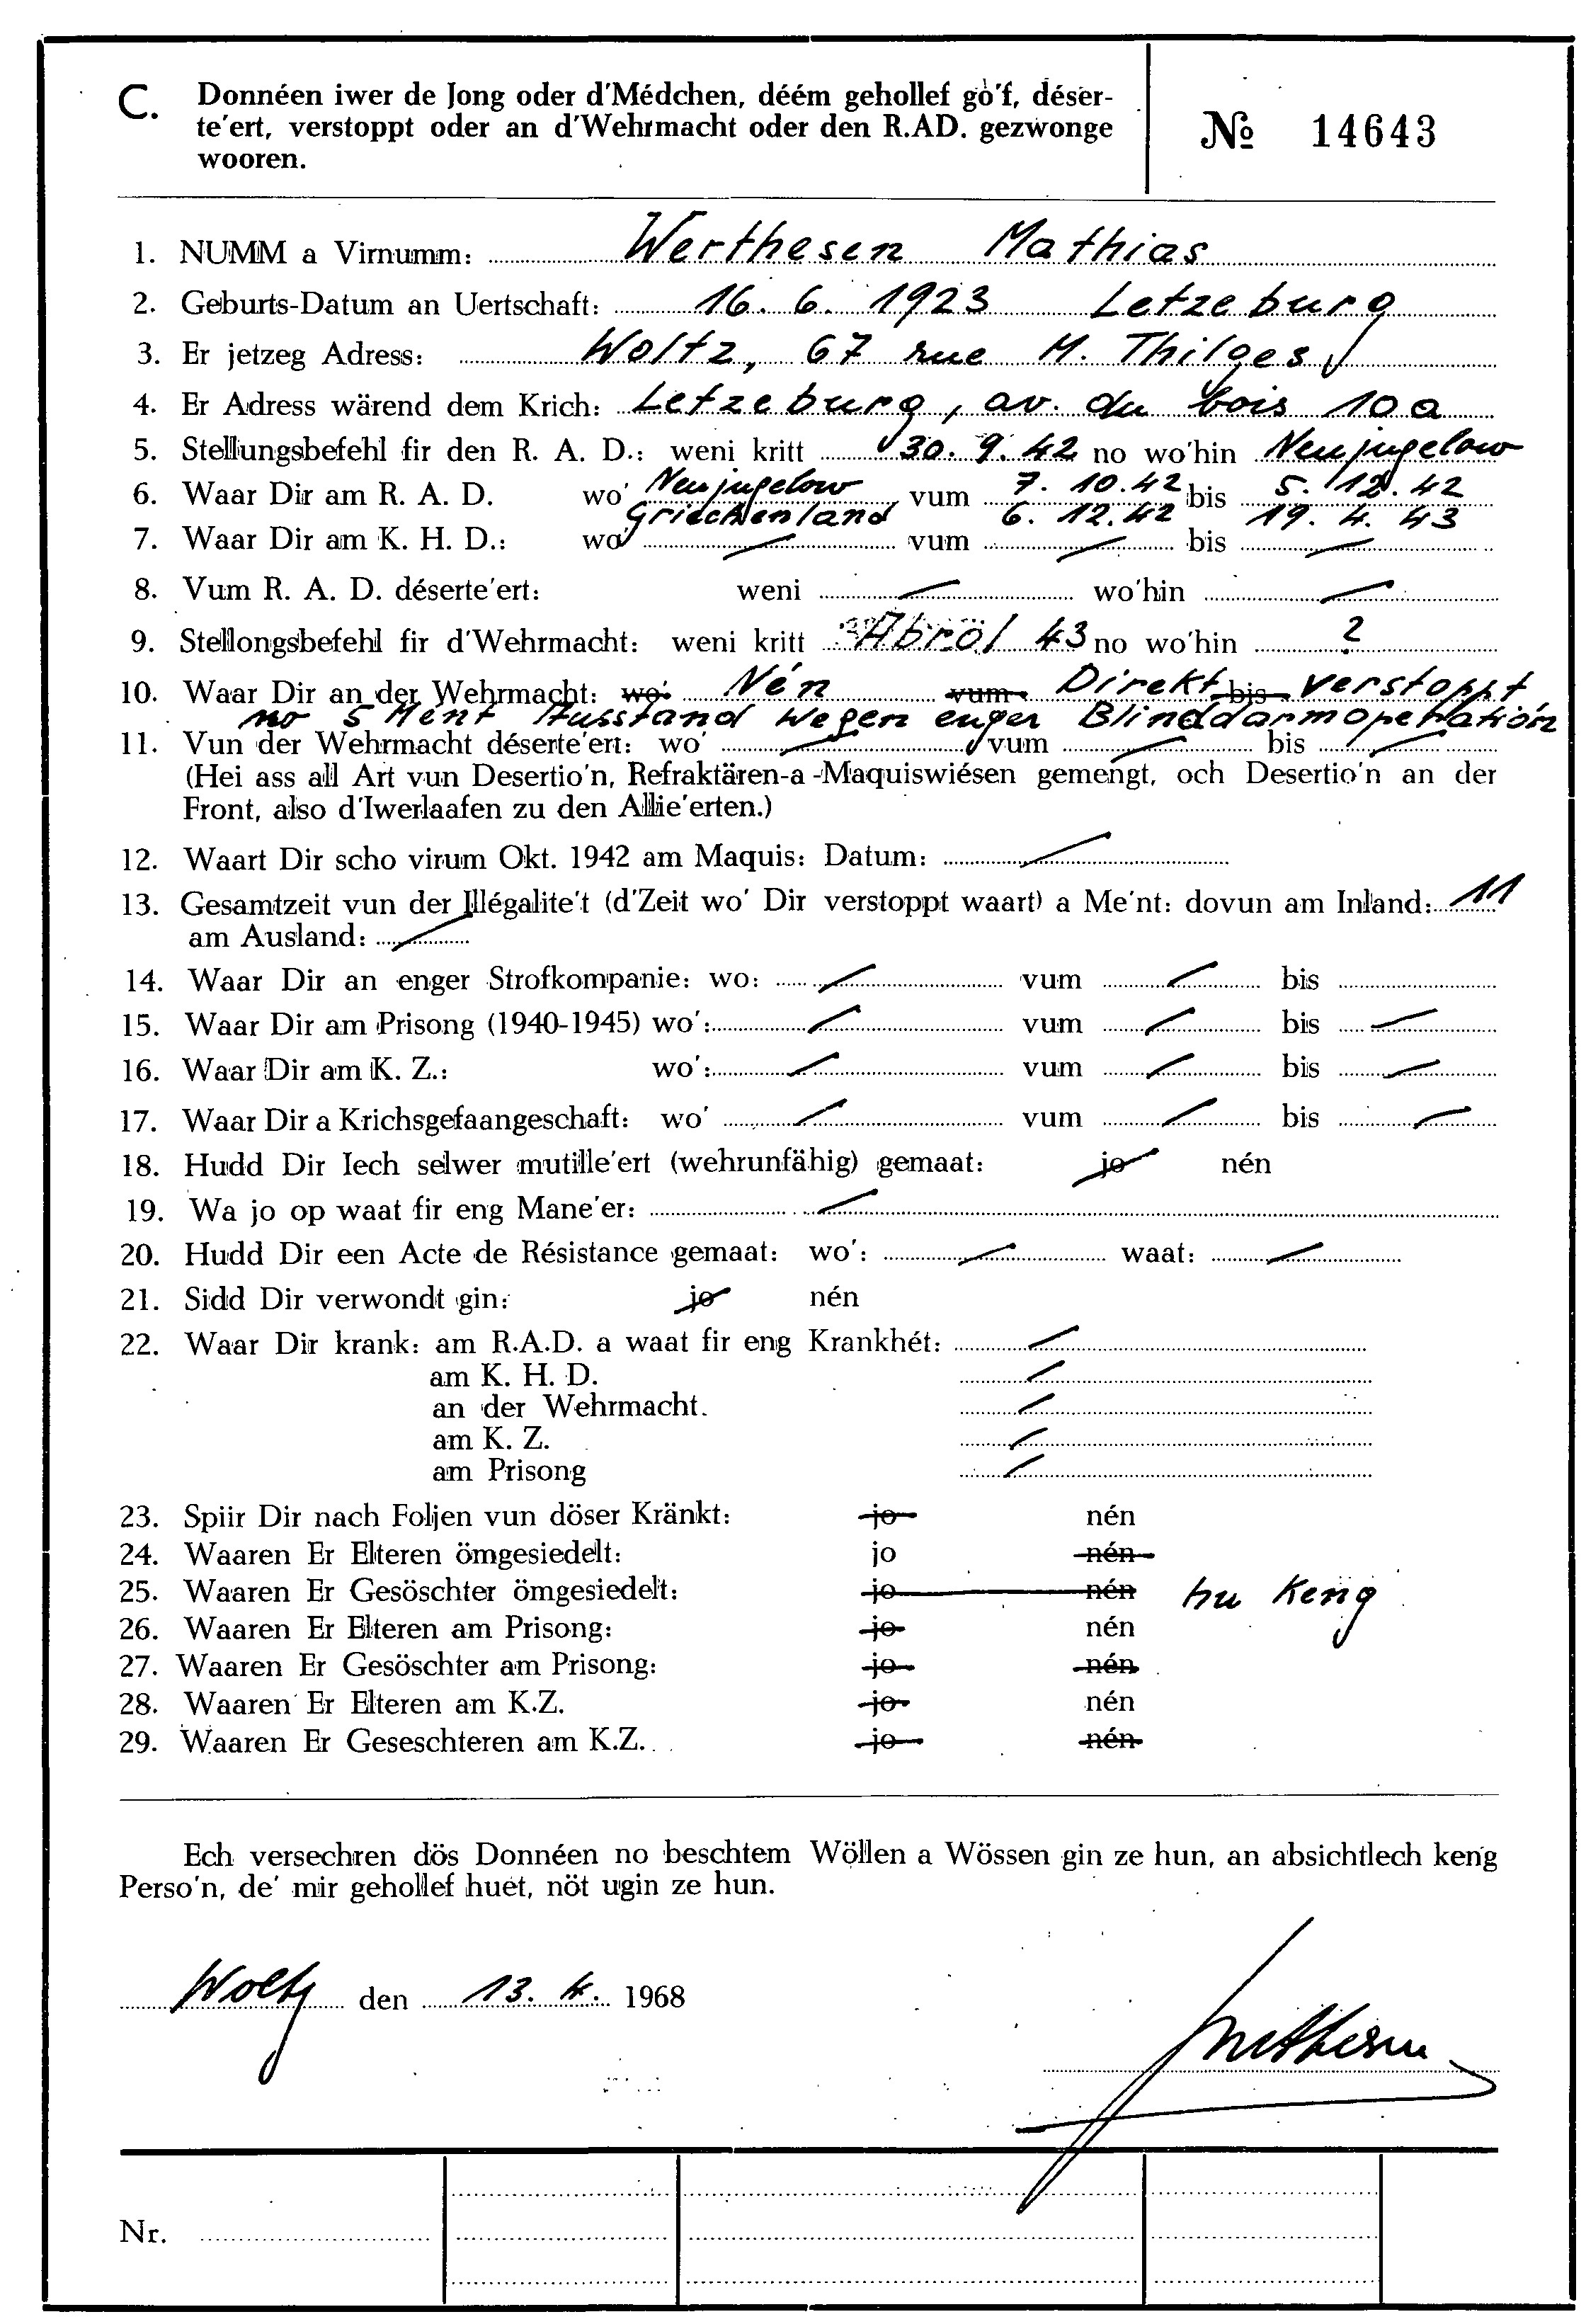 C. Donnéen iwer de Jong oder d'Médchen, déém gehollef gò'f, déser-
te'ert, verstoppt oder an d'Wehrmacht oder den R.AD. gezwonge
wooren.
№ 14643
1. NUMM a Virnumm: Werthesen Mathias
2. Geburts-Datum an Uertschaft: 16. 6. 1923 Letzeburg
3. Er jetzeg Adress: Woltz, 67 rue M. Thilges
4. Er Adress wärend dem Krich: Letzeburg, av. du bois 10a
5. Stellungsbefehl fir den R. A. D.: weni kritt 30. 9. 42 no wo'hin Neujugelow
6. Waar Dir am R. A. D. wo' Neujugelow vum 7. 10. 42 bis 5. 12. 42
Griechenland 6. 12. 42 19. 4. 43
7. Waar Dir am K. H. D.: wo' vum bis
8. Vum R. A. D. déserte'ert: weni wo'hin
9. Stellongsbefehl fir d'Wehrmacht: weni kritt Abröl 43 no wo'hin ?
10. Waar Dir an der Wehrmacht: wo: Nén vum Direkt bis verstoppt
no 5 Ment Ausstand wegen enger Blinddarmoperatión
11. Vun der Wehrmacht déserte'ert: wo' vum bis
(Hei ass all Art vun Desertio'n, Refraktären-a -Maquiswiésen gemengt, och Desertio'n an der
Front, also d'Iwerlaafen zu den Allie'erten.)
12. Waart Dir scho virum Okt. 1942 am Maquis: Datum:
13. Gesamtzeit vun der Illégalite't (d'Zeit wo' Dir verstoppt waart) a Me'nt: dovun am Inland: 11
am Ausland:
14. Waar Dir an enger Strofkompanie: wo: vum bis
15. Waar Dir am Prisong (1940-1945) wo': vum bis
16. Waar Dir am K. Z.: wo': vum bis
17. Waar Dir a Krichsgefaangeschaft: wo' vum bis
18. Hudd Dir Iech selwer mutille'ert (wehrunfähig) gemaat: jo nén
19. Wa jo op waat fir eng Mane'er:
20. Hudd Dir een Acte de Résistance gemaat: wo': waat:
21. Sidd Dir verwondt gin: jo nén
22. Waar Dir krank: am R.A.D. a waat fir eng Krankhét:
am K. H. D.
an der Wehrmacht.
am K. Z.
am Prisong
23. Spiir Dir nach Foljen vun döser Kränkt: jo nén
24. Waaren Er Elteren ömgesiedelt: jo nén
25. Waaren Er Gesöschter ömgesiedelt: jo nén hu keng
26. Waaren Er Elteren am Prisong: jo nén
27. Waaren Er Gesöschter am Prisong: jo nén
28. Waaren Er Elteren am K.Z. jo nén
29. Waaren Er Geseschteren am K.Z. jo nén
Ech versechren dös Donnéen no beschtem Wöllen a Wössen gin ze hun, an absichtlech keng
Perso'n, de' mir gehollef huet, nöt ugin ze hun.
Woltz den 13. 4. 1968
Nr.